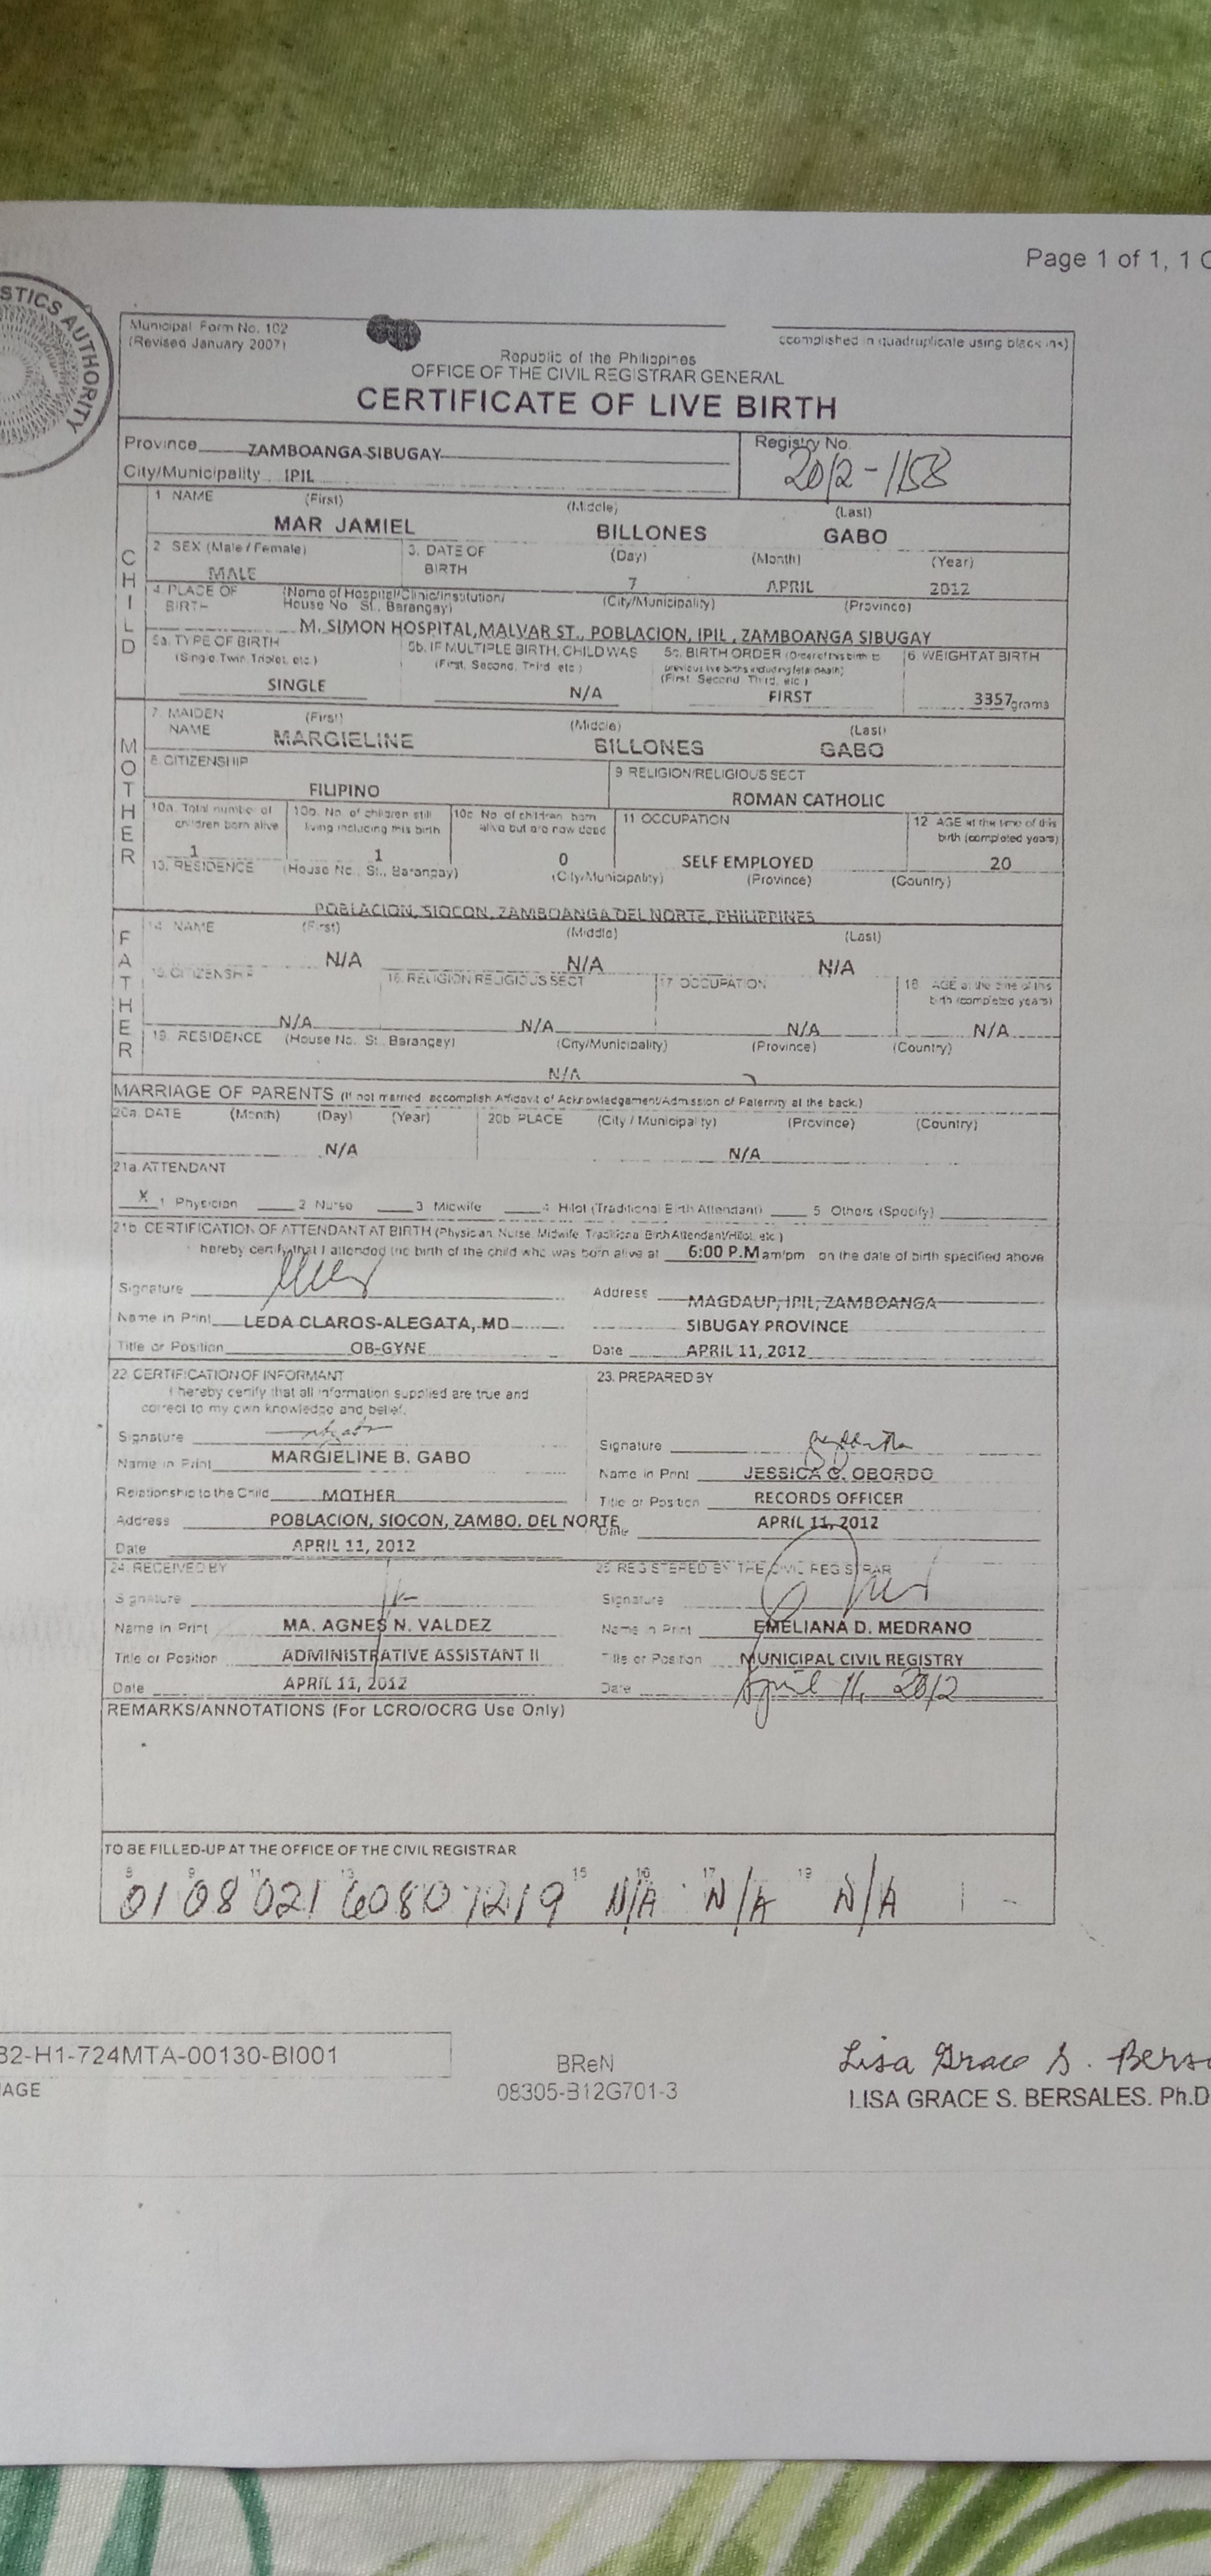 Page 1 of 1, 1 C
STICS AUTHORITY
Municipal Form No. 102
(Revised January 2007)
ccomplished in quadruplicate using black ink)
Republic of the Philippines
OFFICE OF THE CIVIL REGISTRAR GENERAL
CERTIFICATE OF LIVE BIRTH
Province ZAMBOANGA SIBUGAY
City/Municipality IPIL
Registry No.
2012-1158
CHILD
1 NAME (First) (Middle) (Last)
MAR JAMIEL BILLONES GABO
2. SEX (Male / Female) 3. DATE OF BIRTH (Day) (Month) (Year)
MALE 7 APRIL 2012
4. PLACE OF BIRTH (Name of Hospital/Clinic/Institution/ House No. St., Barangay) (City/Municipality) (Province)
M. SIMON HOSPITAL, MALVAR ST., POBLACION, IPIL , ZAMBOANGA SIBUGAY
5a. TYPE OF BIRTH (Single, Twin, Triplet, etc.) 5b. IF MULTIPLE BIRTH, CHILD WAS (First, Second, Third, etc.) 5c. BIRTH ORDER (Order of this birth to previous live births including fetal death) (First, Second, Third, etc.) 6. WEIGHT AT BIRTH
SINGLE N/A FIRST 3357 grams
MOTHER
7. MAIDEN NAME (First) (Middle) (Last)
MARGIELINE BILLONES GABO
8. CITIZENSHIP 9 RELIGION/RELIGIOUS SECT
FILIPINO ROMAN CATHOLIC
10a. Total number of children born alive 10b. No. of children still living including this birth 10c. No. of children born alive but are now dead 11 OCCUPATION 12 AGE at the time of this birth (completed years)
1 1 0 SELF EMPLOYED 20
13. RESIDENCE (House No., St., Barangay) (City/Municipality) (Province) (Country)
POBLACION, SIOCON, ZAMBOANGA DEL NORTE, PHILIPPINES
FATHER
14. NAME (First) (Middle) (Last)
N/A N/A N/A
15. CITIZENSHIP 16. RELIGION/RELIGIOUS SECT 17 OCCUPATION 18. AGE at the time of this birth (completed years)
N/A N/A N/A N/A
19. RESIDENCE (House No. St., Barangay) (City/Municipality) (Province) (Country)
N/A
MARRIAGE OF PARENTS (If not married, accomplish Affidavit of Acknowledgement/Admission of Paternity at the back.)
20a. DATE (Month) (Day) (Year) 20b. PLACE (City / Municipality) (Province) (Country)
N/A N/A
21a. ATTENDANT
X 1 Physician 2 Nurse 3 Midwife 4 Hilot (Traditional Birth Attendant) 5 Others (Specify)
21b. CERTIFICATION OF ATTENDANT AT BIRTH (Physician, Nurse, Midwife, Traditional Birth Attendant/Hilot, etc.)
hereby certify that I attended the birth of the child who was born alive at 6:00 P.M am/pm on the date of birth specified above
Signature Address MAGDAUP, IPIL, ZAMBOANGA
Name in Print LEDA CLAROS-ALEGATA, MD SIBUGAY PROVINCE
Title or Position OB-GYNE Date APRIL 11, 2012
22. CERTIFICATION OF INFORMANT
I hereby certify that all information supplied are true and
correct to my own knowledge and belief.
Signature
Name in Print MARGIELINE B. GABO
Relationship to the Child MOTHER
Address POBLACION, SIOCON, ZAMBO. DEL NORTE
Date APRIL 11, 2012
23. PREPARED BY
Signature
Name in Print JESSICA G. OBORDO
Title or Position RECORDS OFFICER
Date APRIL 11, 2012
24. RECEIVED BY
Signature
Name in Print MA. AGNES N. VALDEZ
Title or Position ADMINISTRATIVE ASSISTANT II
Date APRIL 11, 2012
25. REGISTERED BY THE CIVIL REGISTRAR
Signature
Name in Print EMELIANA D. MEDRANO
Title or Position MUNICIPAL CIVIL REGISTRY
Date April 11, 2012
REMARKS/ANNOTATIONS (For LCRO/OCRG Use Only)
TO BE FILLED-UP AT THE OFFICE OF THE CIVIL REGISTRAR
8 9 11 13 15 16 17 19
01 08 0216080 7219 N/A N/A N/A 1 -
32-H1-724MTA-00130-BI001
AGE
BReN
08305-B12G701-3
Lisa Grace S. Bersa
LISA GRACE S. BERSALES, Ph.D